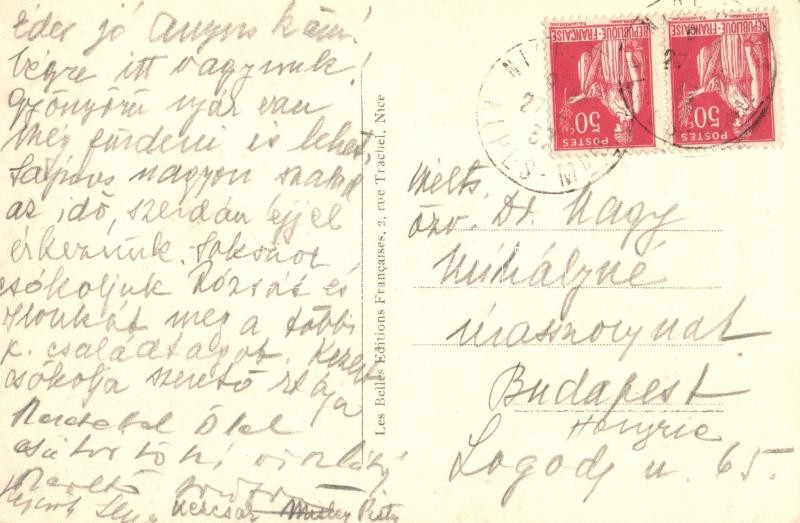 Édes jó Anyuskám!
Végre itt vagyunk!
Gyönyörü nyár van
még fürdeni is lehet,
Sajnos nagyon szalad
az idő, szerdán éjjel
érkezünk. Sokszor
csókoljuk Rózsát és
Ilonkát meg a többi
k. családtagot. Kezeit
csókolja szerető
ölel
viszlát
Pisty
Les Belles Editions Françaises, 2, rue Trachel, Nice
NICE
REPUBLIQUE FRANÇAISE
50c
POSTES
REPUBLIQUE FRANÇAISE
50c
POSTES
Mélts.
özv. Dr. Nagy
Mihályné
úrasszonynak
Budapest
Hongrie
Logodi u. 65.